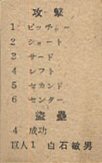 攻撃
1 ピッチャー
2 ショート
3 サード
4 レフト
5 セカンド
6 センター
盗塁
4 成功
巨人1 白石敏男